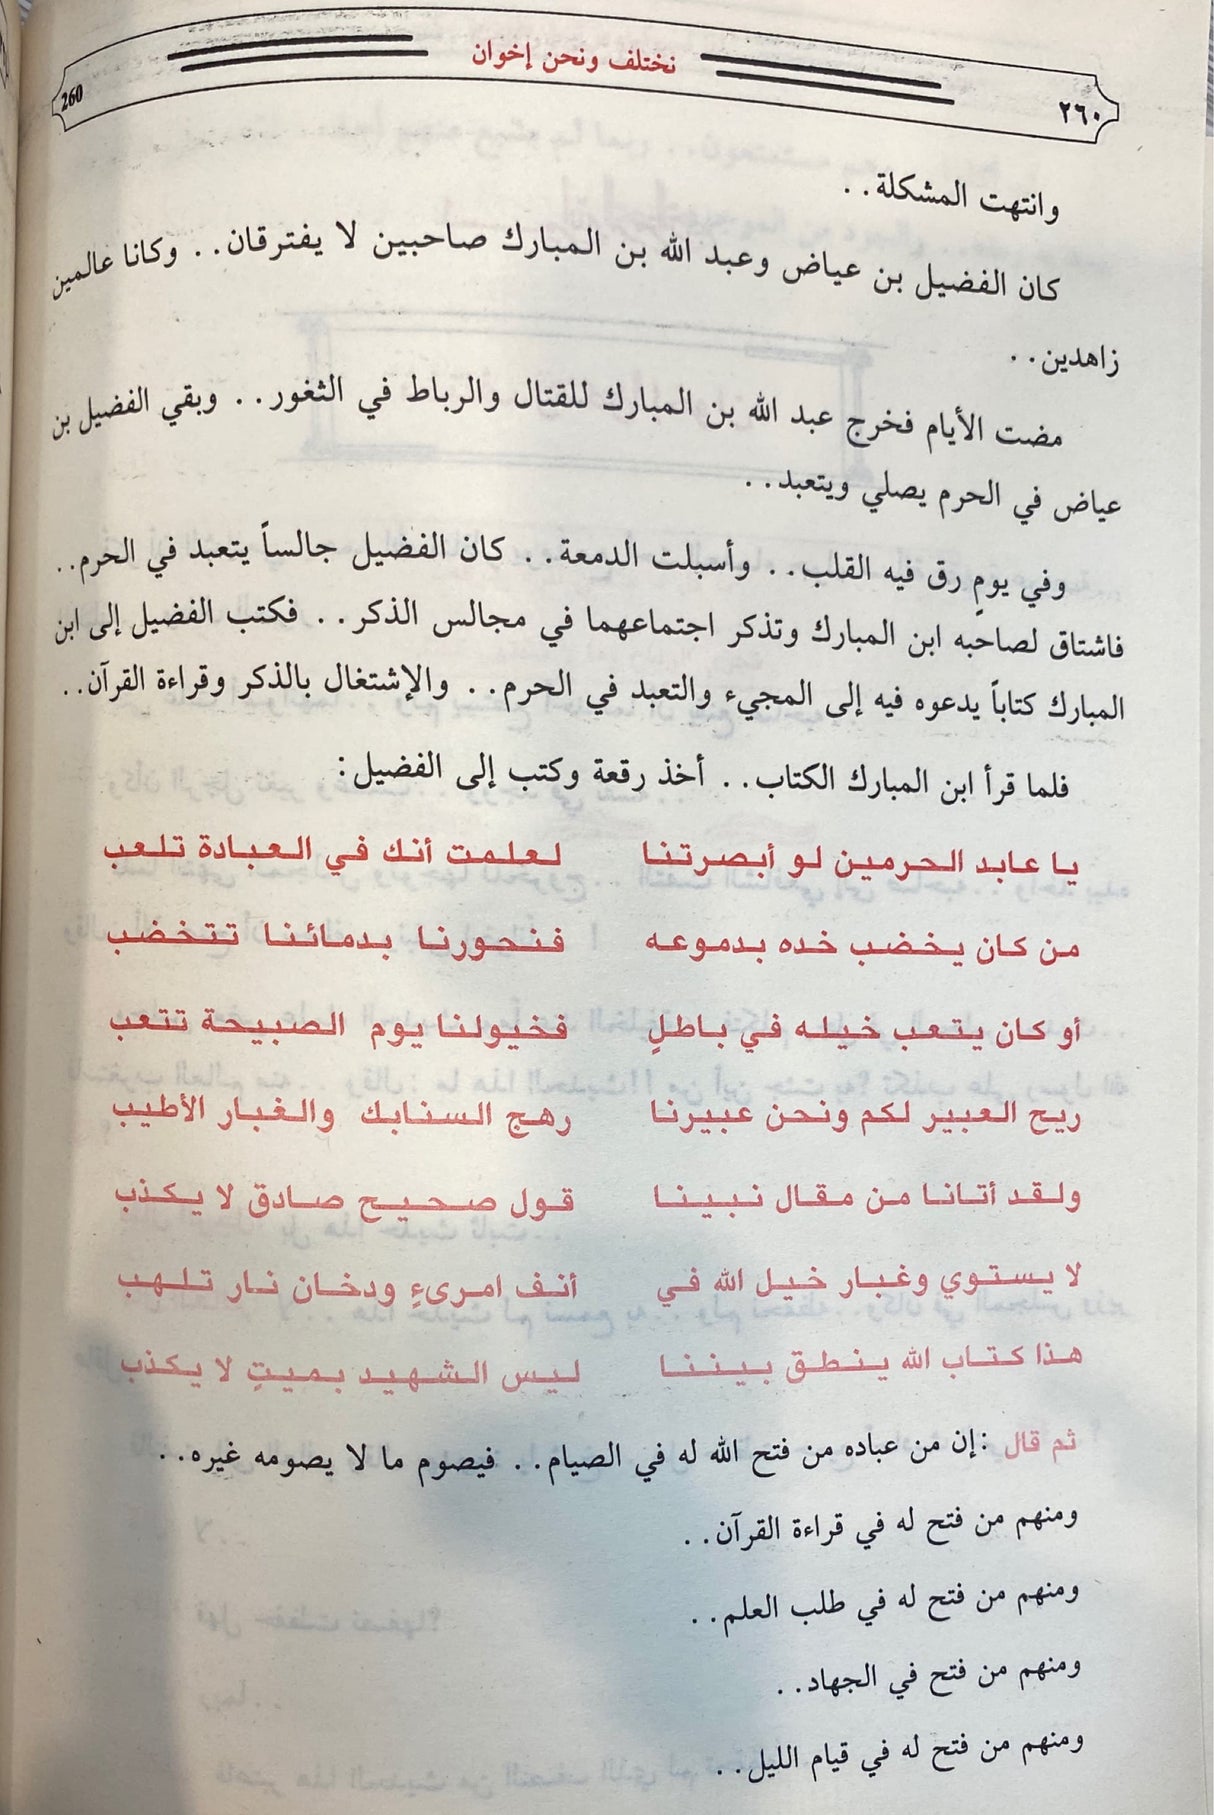 ٢٦٠ نختلف ونحن إخوان 260
وانتهت المشكلة..
كان الفضيل بن عياض وعبد الله بن المبارك صاحبين لا يفترقان.. وكانا عالمين
زاهدين..
مضت الأيام فخرج عبد الله بن المبارك للقتال والرباط في الثغور.. وبقي الفضيل بن
عياض في الحرم يصلي ويتعبد..
وفي يومٍ رق فيه القلب.. وأسبلت الدمعة.. كان الفضيل جالساً يتعبد في الحرم..
فاشتاق لصاحبه ابن المبارك وتذكر اجتماعهما في مجالس الذكر.. فكتب الفضيل إلى ابن
المبارك كتاباً يدعوه فيه إلى المجيء والتعبد في الحرم.. والإشتغال بالذكر وقراءة القرآن..
فلما قرأ ابن المبارك الكتاب.. أخذ رقعة وكتب إلى الفضيل:
يا عابد الحرمين لو أبصرتنا لعلمت أنك في العبادة تلعب
من كان يخضب خده بدموعه فنحورنا بدمائنا تتخضب
أو كان يتعب خيله في باطلٍ فخيولنا يوم الصبيحة تتعب
ريح العبير لكم ونحن عبيرنا رهج السنابك والغبار الأطيب
ولقد أتانا من مقال نبينا قول صحيح صادق لا يكذب
لا يستوي وغبار خيل الله في أنف امرىءٍ ودخان نار تلهب
هذا كتاب الله ينطق بيننا ليس الشهيد بميتٍ لا يكذب
ثم قال :إن من عباده من فتح الله له في الصيام.. فيصوم ما لا يصومه غيره..
ومنهم من فتح له في قراءة القرآن..
ومنهم من فتح له في طلب العلم..
ومنهم من فتح في الجهاد..
ومنهم من فتح له في قيام الليل..